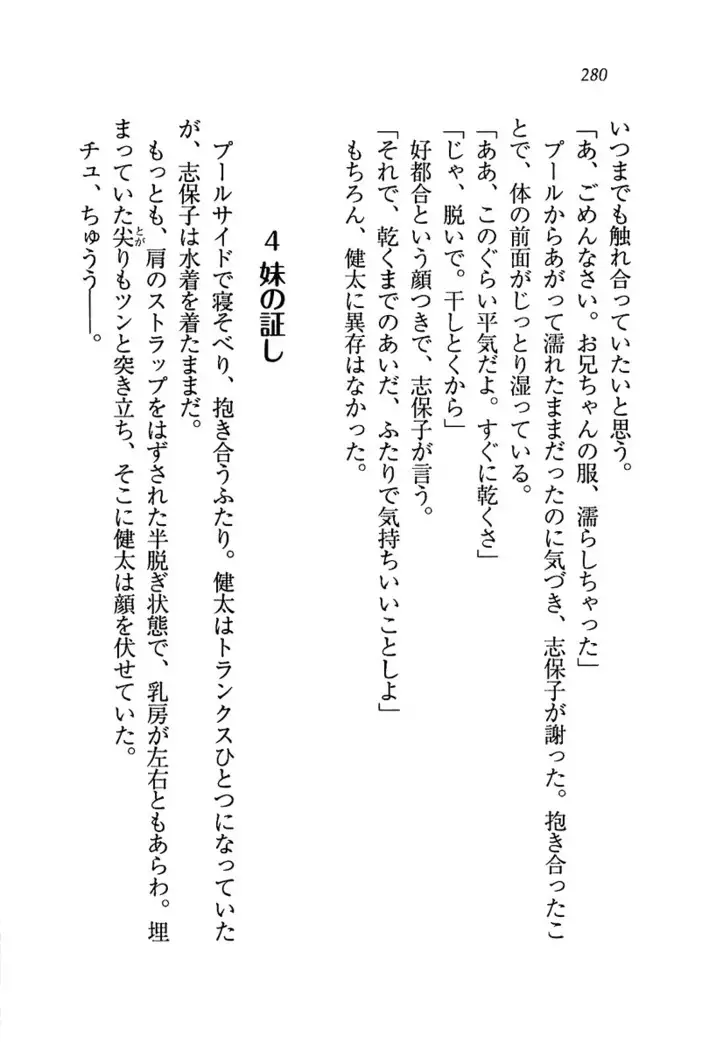 280
いつまでも触れ合っていたいと思う。
「あ、ごめんなさい。お兄ちゃんの服、濡らしちゃった」
プールからあがって濡れたままだったのに気づき、志保子が謝った。抱き合ったこ
とで、体の前面がじっとり湿っている。
「ああ、このぐらい平気だよ。すぐに乾くさ」
「じゃ、脱いで。干しとくから」
好都合という顔つきで、志保子が言う。
「それで、乾くまでのあいだ、ふたりで気持ちいいことしよ」
もちろん、健太に異存はなかった。
4 妹の証し
プールサイドで寝そべり、抱き合うふたり。健太はトランクスひとつになっていた
が、志保子は水着を着たままだ。
もっとも、肩のストラップをはずされた半脱ぎ状態で、乳房が左右ともあらわ。埋
まっていた尖りもツンと突き立ち、そこに健太は顔を伏せていた。
とが
チュ、ちゅうう――。